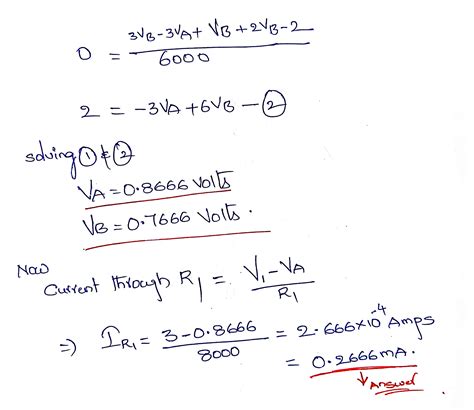 0 = 3VB-3VA+VB+2VB-2 / 6000
2 = -3VA+6VB-②
solving ① & ②
VA=0.8666 Volts
VB=0.7666 Volts.
Now
Current through R1 = V1-VA / R1
⇒ IR1 = 3-0.8666 / 8000 = 2.666×10^-4 Amps
= 0.2666mA.
↓ Answer